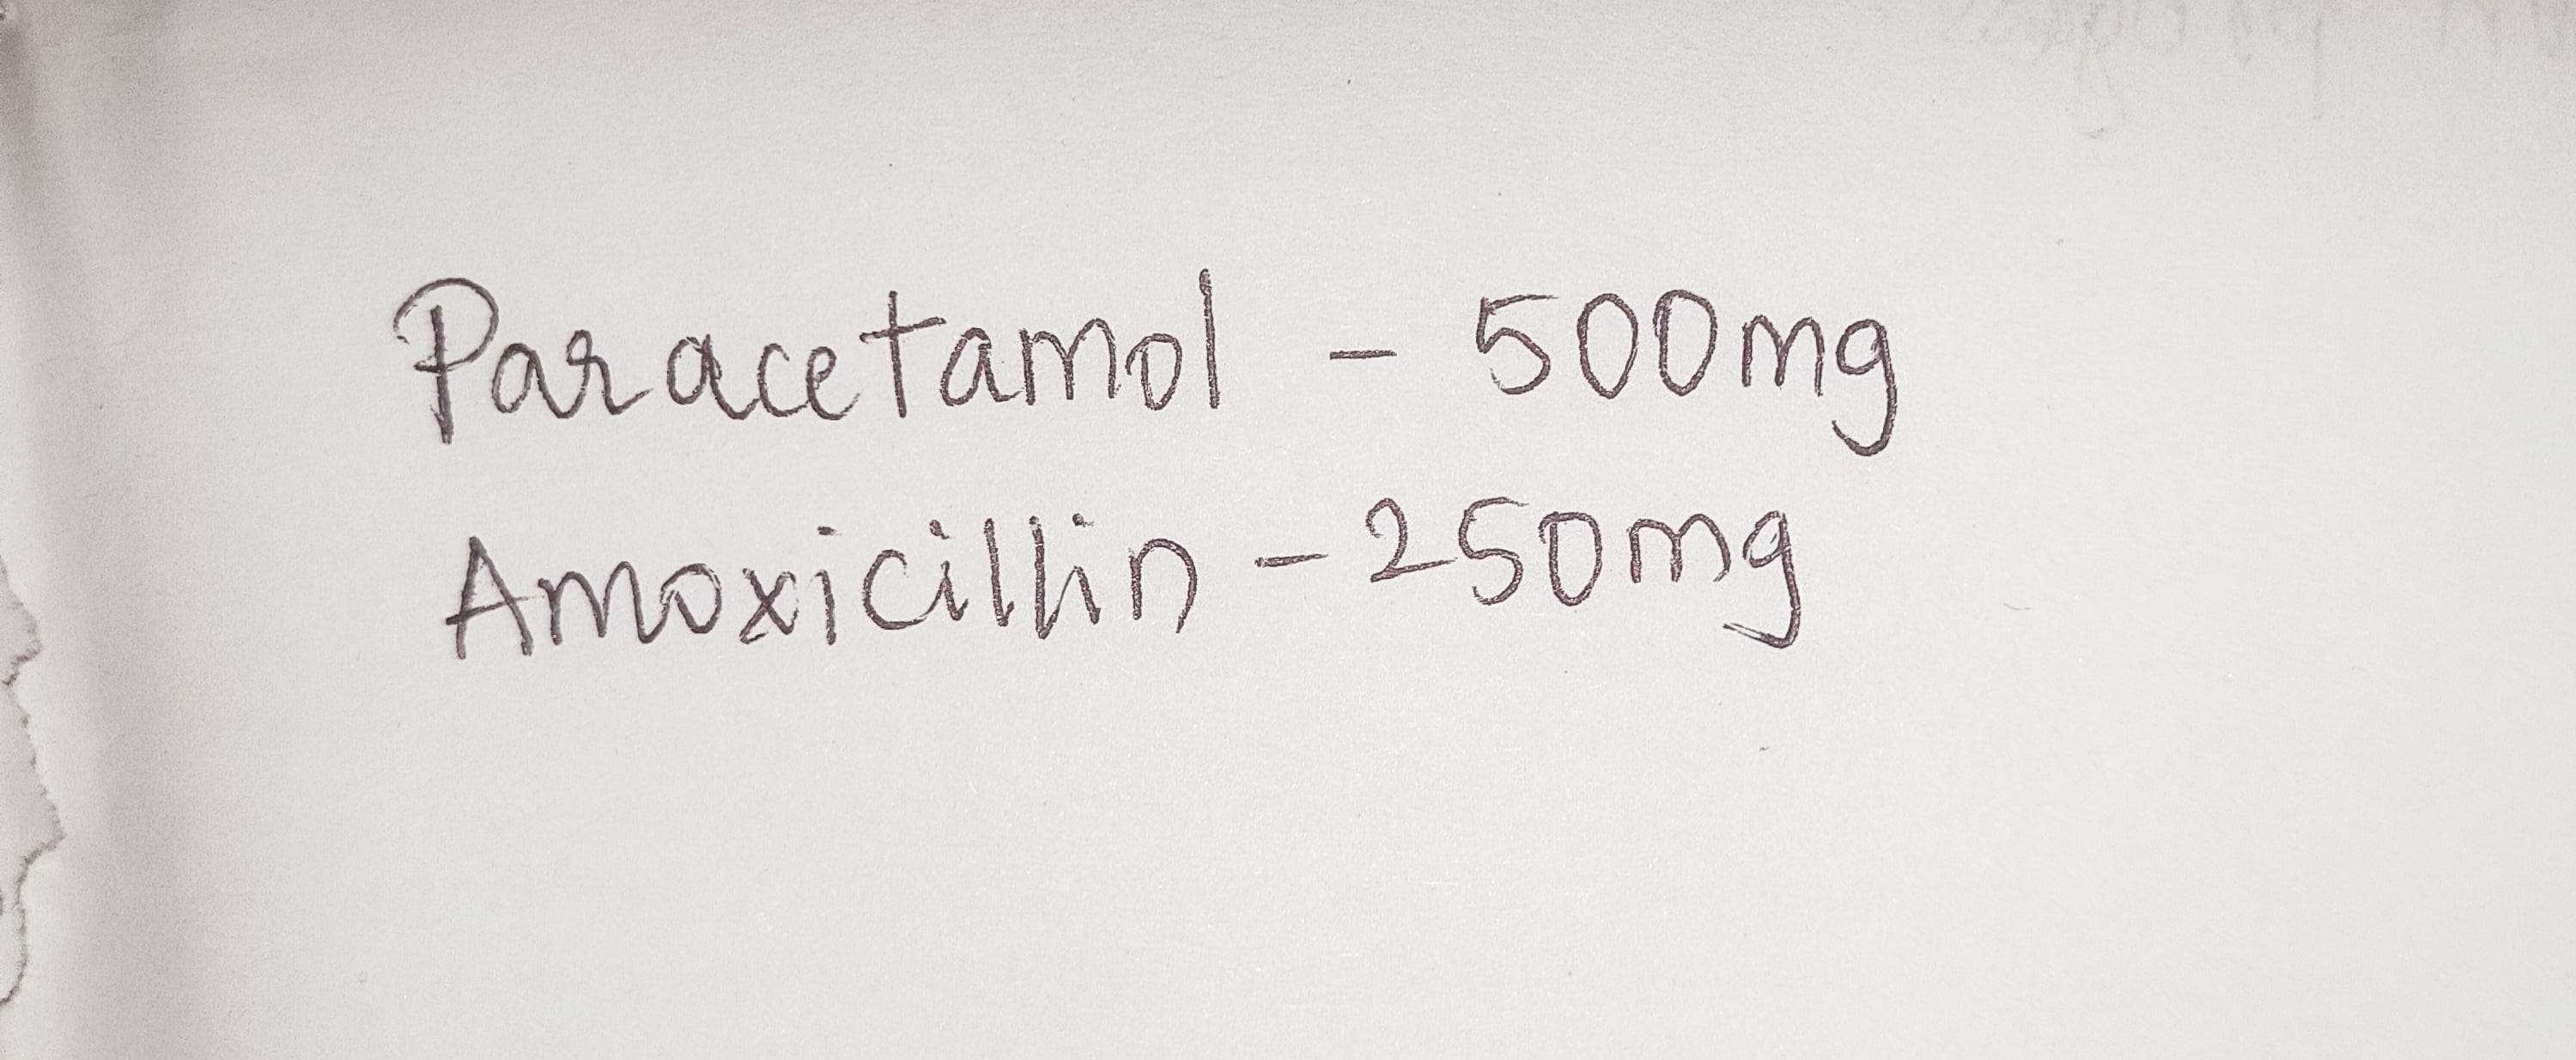 Paracetamol - 500mg
Amoxicillin - 250mg